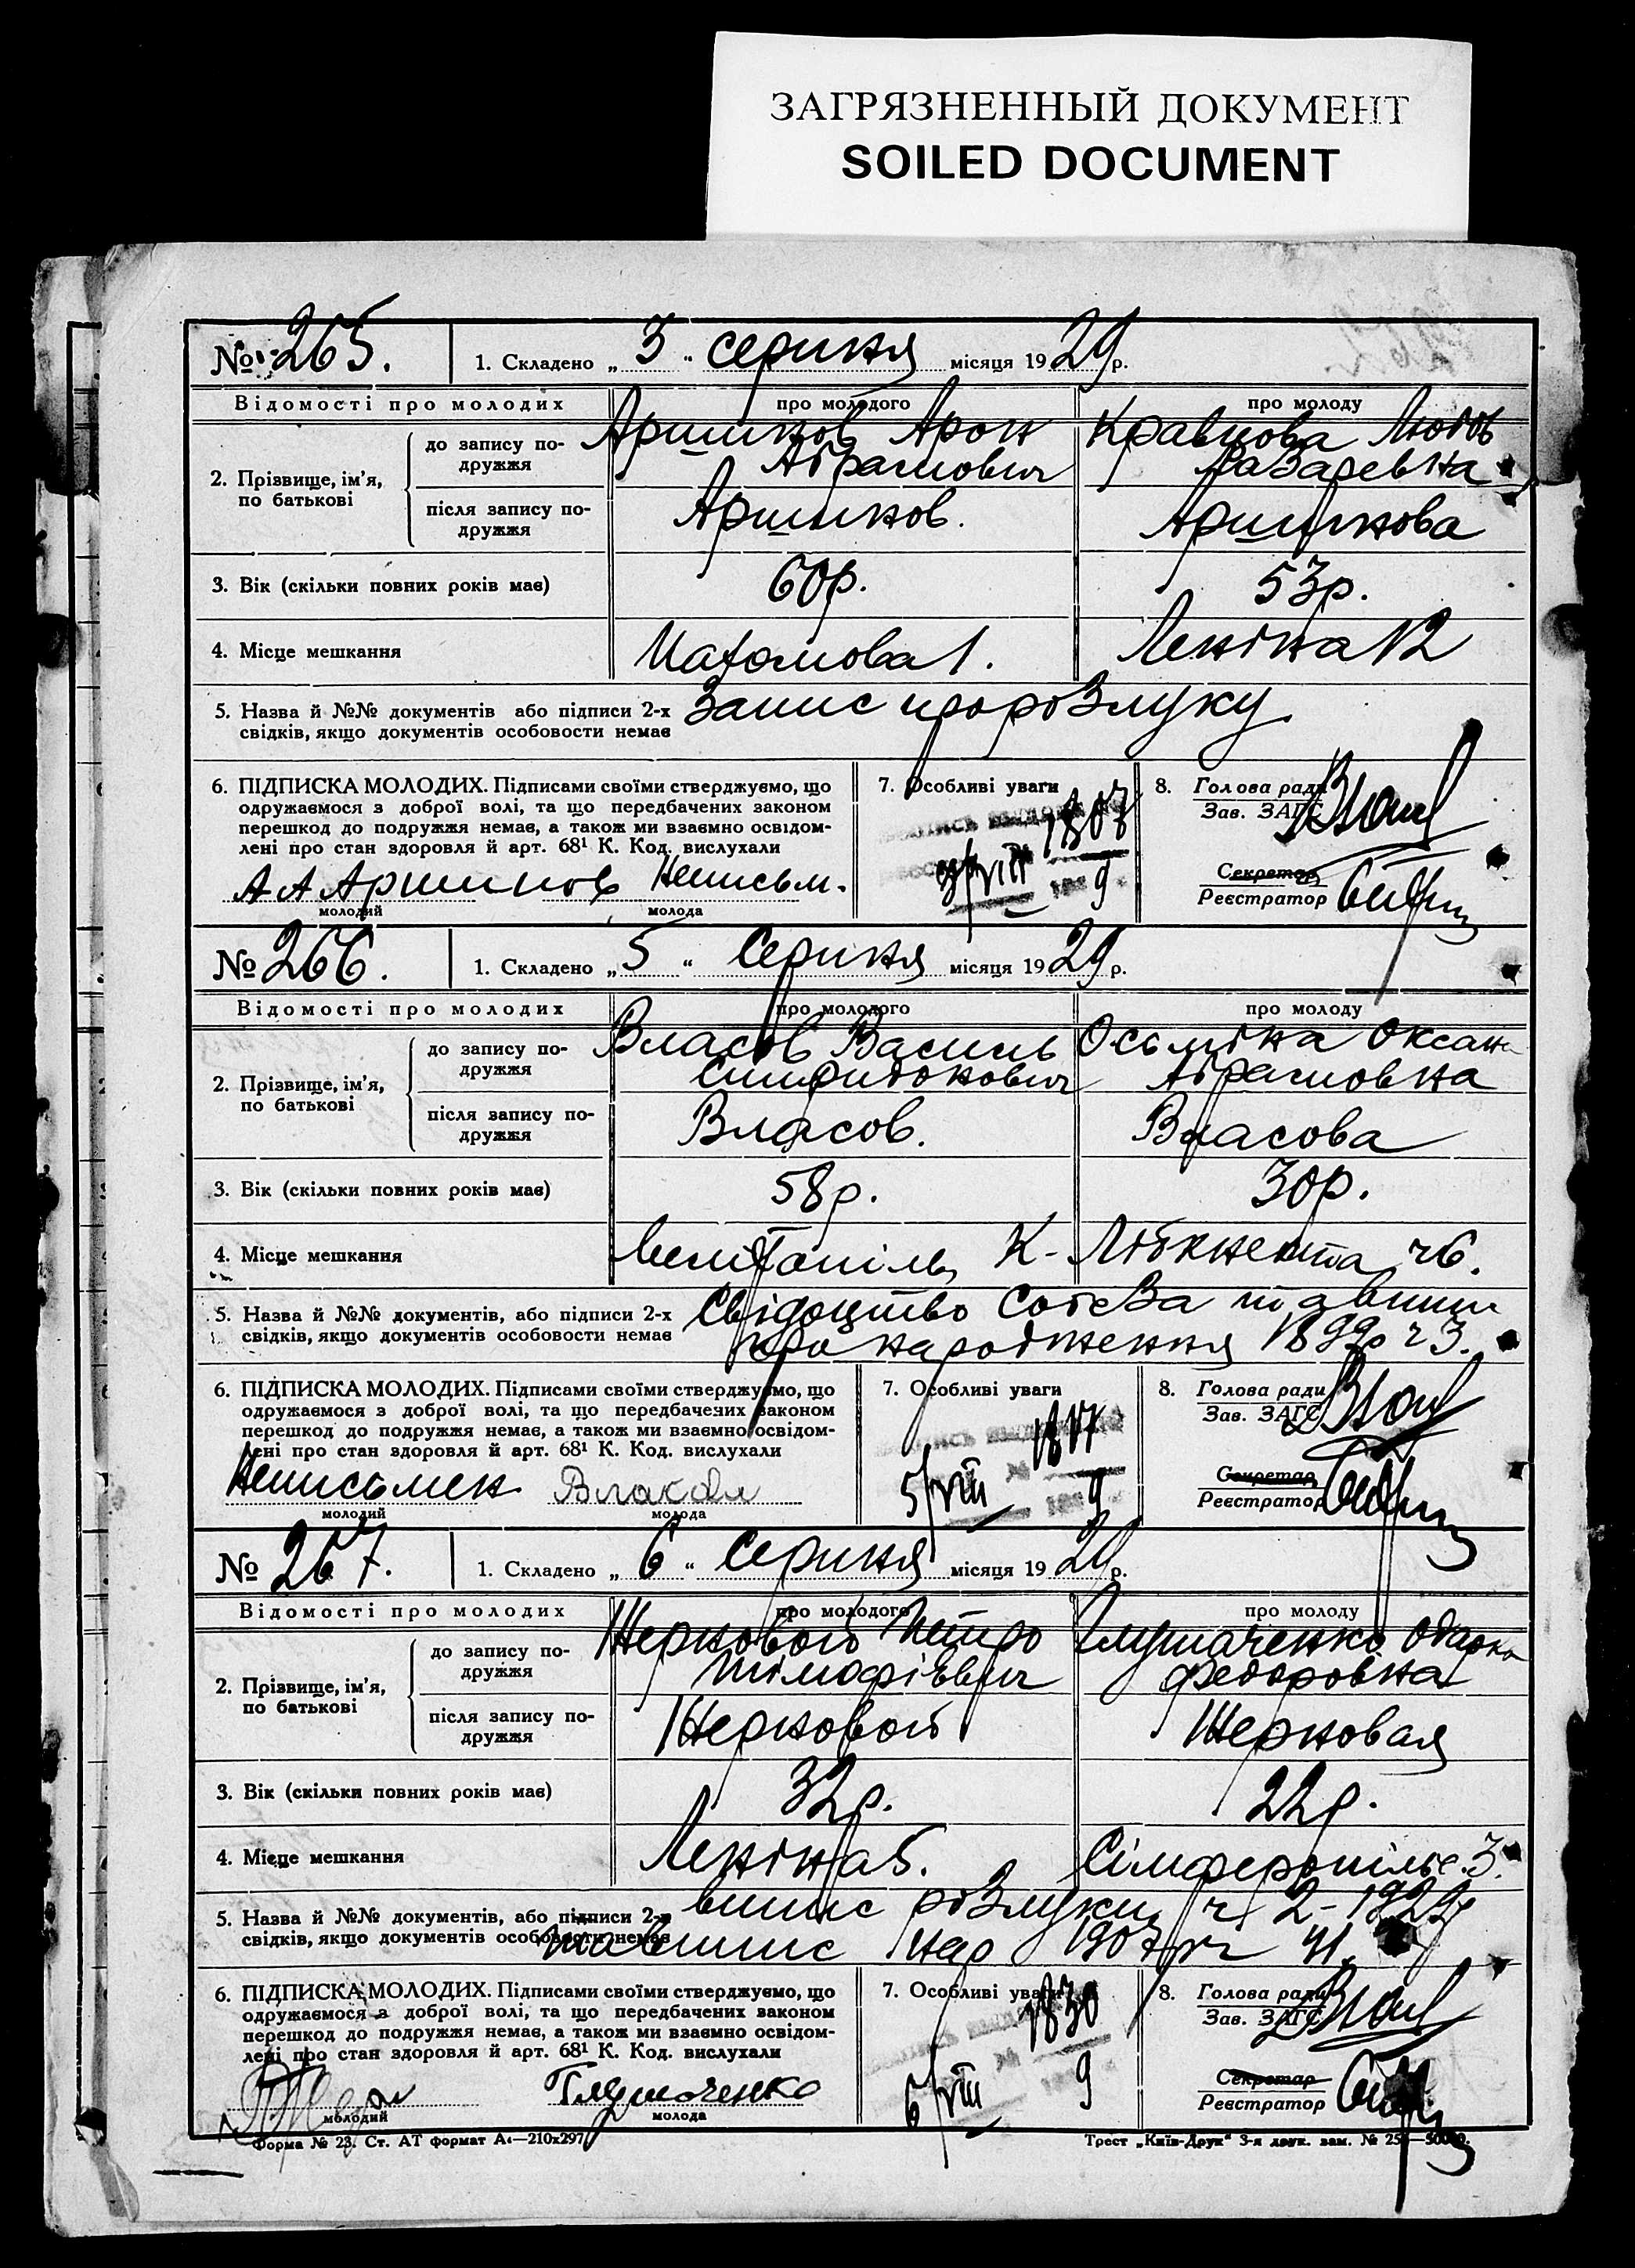 ЗАГРЯЗНЕННЫЙ ДОКУМЕНТ
SOILED DOCUMENT
№ 265. 1. Складено „ 3 “ серпня місяця 1929 р.
Відомості про молодих про молодого про молоду
2. Прізвище, ім’я, по батькові
до запису по-дружжя Аршинков Арон Кравцова Любов
Абрамович Лазаревна
після запису по-дружжя Аршинков. Аршинкова
3. Вік (скільки повних років має) 60 р. 53 р.
4. Місце мешкання 1. Леніна 12
5. Назва й №№ документів або підписи 2-х Запис про розлуку
свідків, якщо документів особовости немає
6. ПІДПИСКА МОЛОДИХ. Підписами своїми стверджуємо, що
одружаємося з доброї волі, та що передбачених законом
перешкод до подружжя немає, а також ми взаємно освідом-
лені про стан здоровля й арт. 68¹ К. Код. вислухали
А А Аршинков Неписьм.
молодий молода
7. Особливі уваги
1807
3/VIII 9
8. Голова ради
Зав. ЗАГС
Секретар
Реєстратор
№ 266. 1. Складено „ 5 “ Серпня місяця 1929 р.
Відомості про молодих про молодого про молоду
2. Прізвище, ім’я, по батькові
до запису по-дружжя Власов Василь Осьміна Оксана
Абрамовна
після запису по-дружжя Власов. Власова
3. Вік (скільки повних років має) 58 р. 30 р.
4. Місце мешкання Мелітопіль К-Лібкнехта ч 6.
5. Назва й №№ документів, або підписи 2-х Свідоцтво Собеза та випис
свідків, якщо документів особовости немає про народження 1899 р ч 3.
6. ПІДПИСКА МОЛОДИХ. Підписами своїми стверджуємо, що
одружаємося з доброї волі, та що передбачених законом
перешкод до подружжя немає, а також ми взаємно освідом-
лені про стан здоровля й арт. 68¹ К. Код. вислухали
Неписьмен
молодий молода
7. Особливі уваги
1817
5/VIII 9
8. Голова ради
Зав. ЗАГС
Секретар
Реєстратор
№ 267. 1. Складено „ 6 “ Серпня місяця 1929 р.
Відомості про молодих про молодого про молоду
2. Прізвище, ім’я, по батькові
до запису по-дружжя Жерновой Петро Глушаченко Одарка
Тімофієвич Федоровна
після запису по-дружжя Жерновой Жерновая
3. Вік (скільки повних років має) 32 р. 22 р.
4. Місце мешкання Леніна 5. Сімферопільс. 3.
5. Назва й №№ документів, або підписи 2-х випис розлуки ч 2 - 1929 р
свідків, якщо документів особовости немає та випис нар 1907 р ч 41.
6. ПІДПИСКА МОЛОДИХ. Підписами своїми стверджуємо, що
одружаємося з доброї волі, та що передбачених законом
перешкод до подружжя немає, а також ми взаємно освідом-
лені про стан здоровля й арт. 68¹ К. Код. вислухали
Глушоченко
молодий молода
7. Особливі уваги
1830
6/VIII 9
8. Голова ради
Зав. ЗАГС
Секретар
Реєстратор
Форма № 23. Ст. АТ формат А₄—210х297
Трест „Київ-Друк“ 3-я друк. зам. №